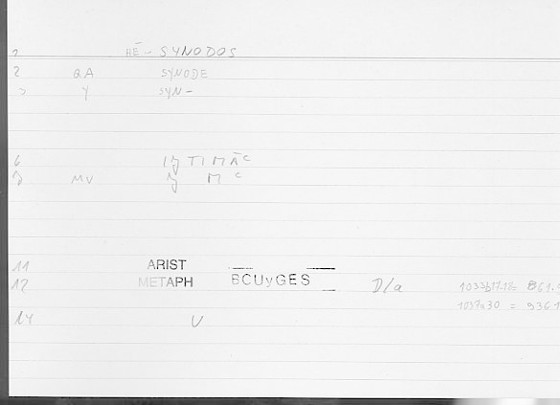 1 HĒ - SYNODOS
2 BA SYNODE
3 Y SYN-
6 Iy TIMĀC
7 MV Iy M C
11 ARIST
12 METAPH BCUyGES D/a 1033b17.18 = 861.
1037a30 = 936.1
14 V